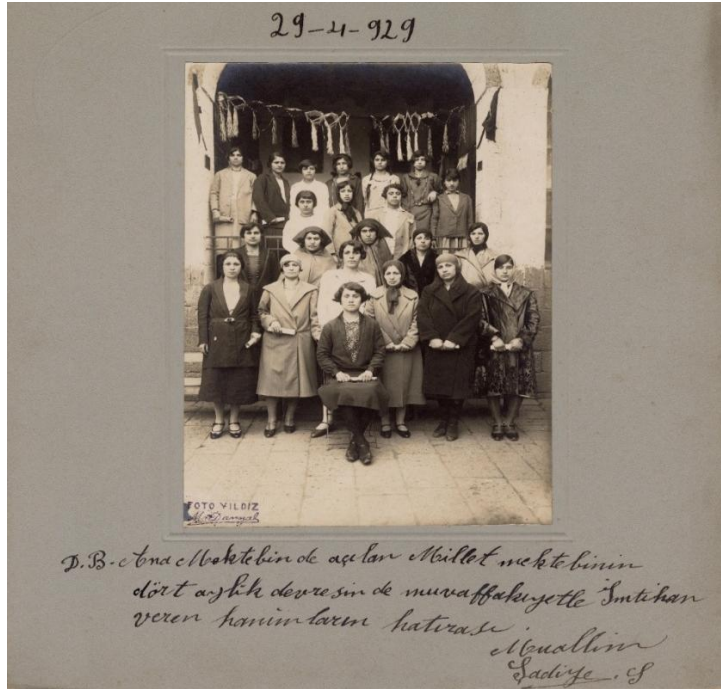 29-4-929
FOTO YILDIZ
D.B. Ana Mektebin de açılan Millet mektebinin
dört aylık devresin de muvaffakıyetle İmtihan
veren hanımların hatırası
Muallim
Sadiye. S